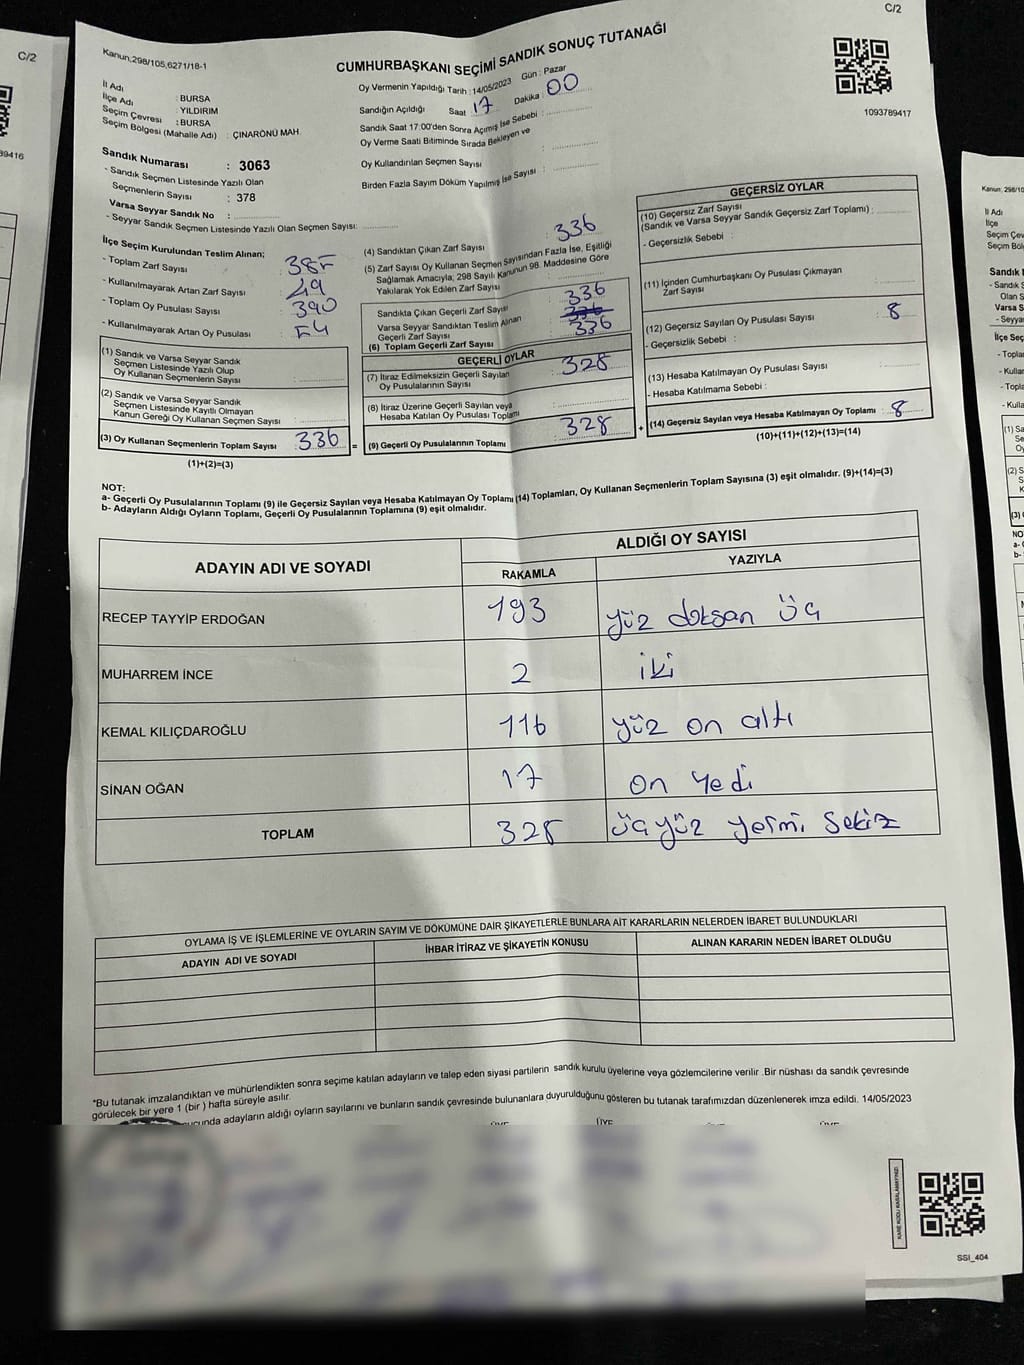 C/2
C/2
Kanun;298/105,6271/18-1
CUMHURBAŞKANI SEÇİMİ SANDIK SONUÇ TUTANAĞI
1093789417
İl Adı : BURSA
İlçe Adı : YILDIRIM
Seçim Çevresi : BURSA
Seçim Bölgesi (Mahalle Adı) : ÇINARÖNÜ MAH.
Sandık Numarası : 3063
- Sandık Seçmen Listesinde Yazılı Olan
Seçmenlerin Sayısı : 378
Varsa Seyyar Sandık No :
- Seyyar Sandık Seçmen Listesinde Yazılı Olan Seçmen Sayısı:
İlçe Seçim Kurulundan Teslim Alınan;
- Toplam Zarf Sayısı
- Kullanılmayarak Artan Zarf Sayısı 49
- Toplam Oy Pusulası Sayısı 390
- Kullanılmayarak Artan Oy Pusulası
(1) Sandık ve Varsa Seyyar Sandık
Seçmen Listesinde Yazılı Olup
Oy Kullanan Seçmenlerin Sayısı :
(2) Sandık ve Varsa Seyyar Sandık
Seçmen Listesinde Kayıtlı Olmayan
Kanun Gereği Oy Kullanan Seçmen Sayısı :
(3) Oy Kullanan Seçmenlerin Toplam Sayısı 336
(1)+(2)=(3)
Oy Vermenin Yapıldığı Tarih : 14/05/2023 Gün : Pazar
Sandığın Açıldığı Saat 17 Dakika : 00
Sandık Saat 17:00'den Sonra Açmış İse Sebebi :
Oy Verme Saati Bitiminde Sırada Bekleyen ve
Oy Kullandırılan Seçmen Sayısı :
Birden Fazla Sayım Döküm Yapılmış İse Sayısı :
(4) Sandıktan Çıkan Zarf Sayısı 336
(5) Zarf Sayısı Oy Kullanan Seçmen Sayısından Fazla İse, Eşitliği
Sağlamak Amacıyla; 298 Sayılı Kanunun 98. Maddesine Göre
Yakılarak Yok Edilen Zarf Sayısı :
Sandıkta Çıkan Geçerli Zarf Sayısı 336
Varsa Seyyar Sandıktan Teslim Alınan
Geçerli Zarf Sayısı : 336
(6) Toplam Geçerli Zarf Sayısı 336
GEÇERLİ OYLAR
(7) İtiraz Edilmeksizin Geçerli Sayılan
Oy Pusulalarının Sayısı 328
(8) İtiraz Üzerine Geçerli Sayılan veya
Hesaba Katılan Oy Pusulası Toplamı
= (9) Geçerli Oy Pusulalarının Toplamı 328
GEÇERSİZ OYLAR
(10) Geçersiz Zarf Sayısı
(Sandık ve Varsa Seyyar Sandık Geçersiz Zarf Toplamı) :
- Geçersizlik Sebebi :
(11) İçinden Cumhurbaşkanı Oy Pusulası Çıkmayan
Zarf Sayısı
(12) Geçersiz Sayılan Oy Pusulası Sayısı : 8
- Geçersizlik Sebebi :
(13) Hesaba Katılmayan Oy Pusulası Sayısı :
- Hesaba Katılmama Sebebi :
+ (14) Geçersiz Sayılan veya Hesaba Katılmayan Oy Toplamı : 8
(10)+(11)+(12)+(13)=(14)
NOT:
a- Geçerli Oy Pusulalarının Toplamı (9) ile Geçersiz Sayılan veya Hesaba Katılmayan Oy Toplamı (14) Toplamları, Oy Kullanan Seçmenlerin Toplam Sayısına (3) eşit olmalıdır. (9)+(14)=(3)
b- Adayların Aldığı Oyların Toplamı, Geçerli Oy Pusulalarının Toplamına (9) eşit olmalıdır.
ADAYIN ADI VE SOYADI ALDIĞI OY SAYISI
RAKAMLA YAZIYLA
RECEP TAYYİP ERDOĞAN 193 yüz doksan üç
MUHARREM İNCE 2 iki
KEMAL KILIÇDAROĞLU 116 yüz on altı
SİNAN OĞAN 17 on yedi
TOPLAM 328 üçyüz yermi sekiz
OYLAMA İŞ VE İŞLEMLERİNE VE OYLARIN SAYIM VE DÖKÜMÜNE DAİR ŞİKAYETLERLE BUNLARA AİT KARARLARIN NELERDEN İBARET BULUNDUKLARI
ADAYIN ADI VE SOYADI İHBAR İTİRAZ VE ŞİKAYETİN KONUSU ALINAN KARARIN NEDEN İBARET OLDUĞU
*Bu tutanak imzalandıktan ve mühürlendikten sonra seçime katılan adayların ve talep eden siyasi partilerin sandık kurulu üyelerine veya gözlemcilerine verilir .Bir nüshası da sandık çevresinde
görülecek bir yere 1 (bir ) hafta süreyle asılır.
adayların aldığı oyların sayılarını ve bunların sandık çevresinde bulunanlara duyurulduğunu gösteren bu tutanak tarafımızdan düzenlenerek imza edildi. 14/05/2023
ÜYE
SSI_404